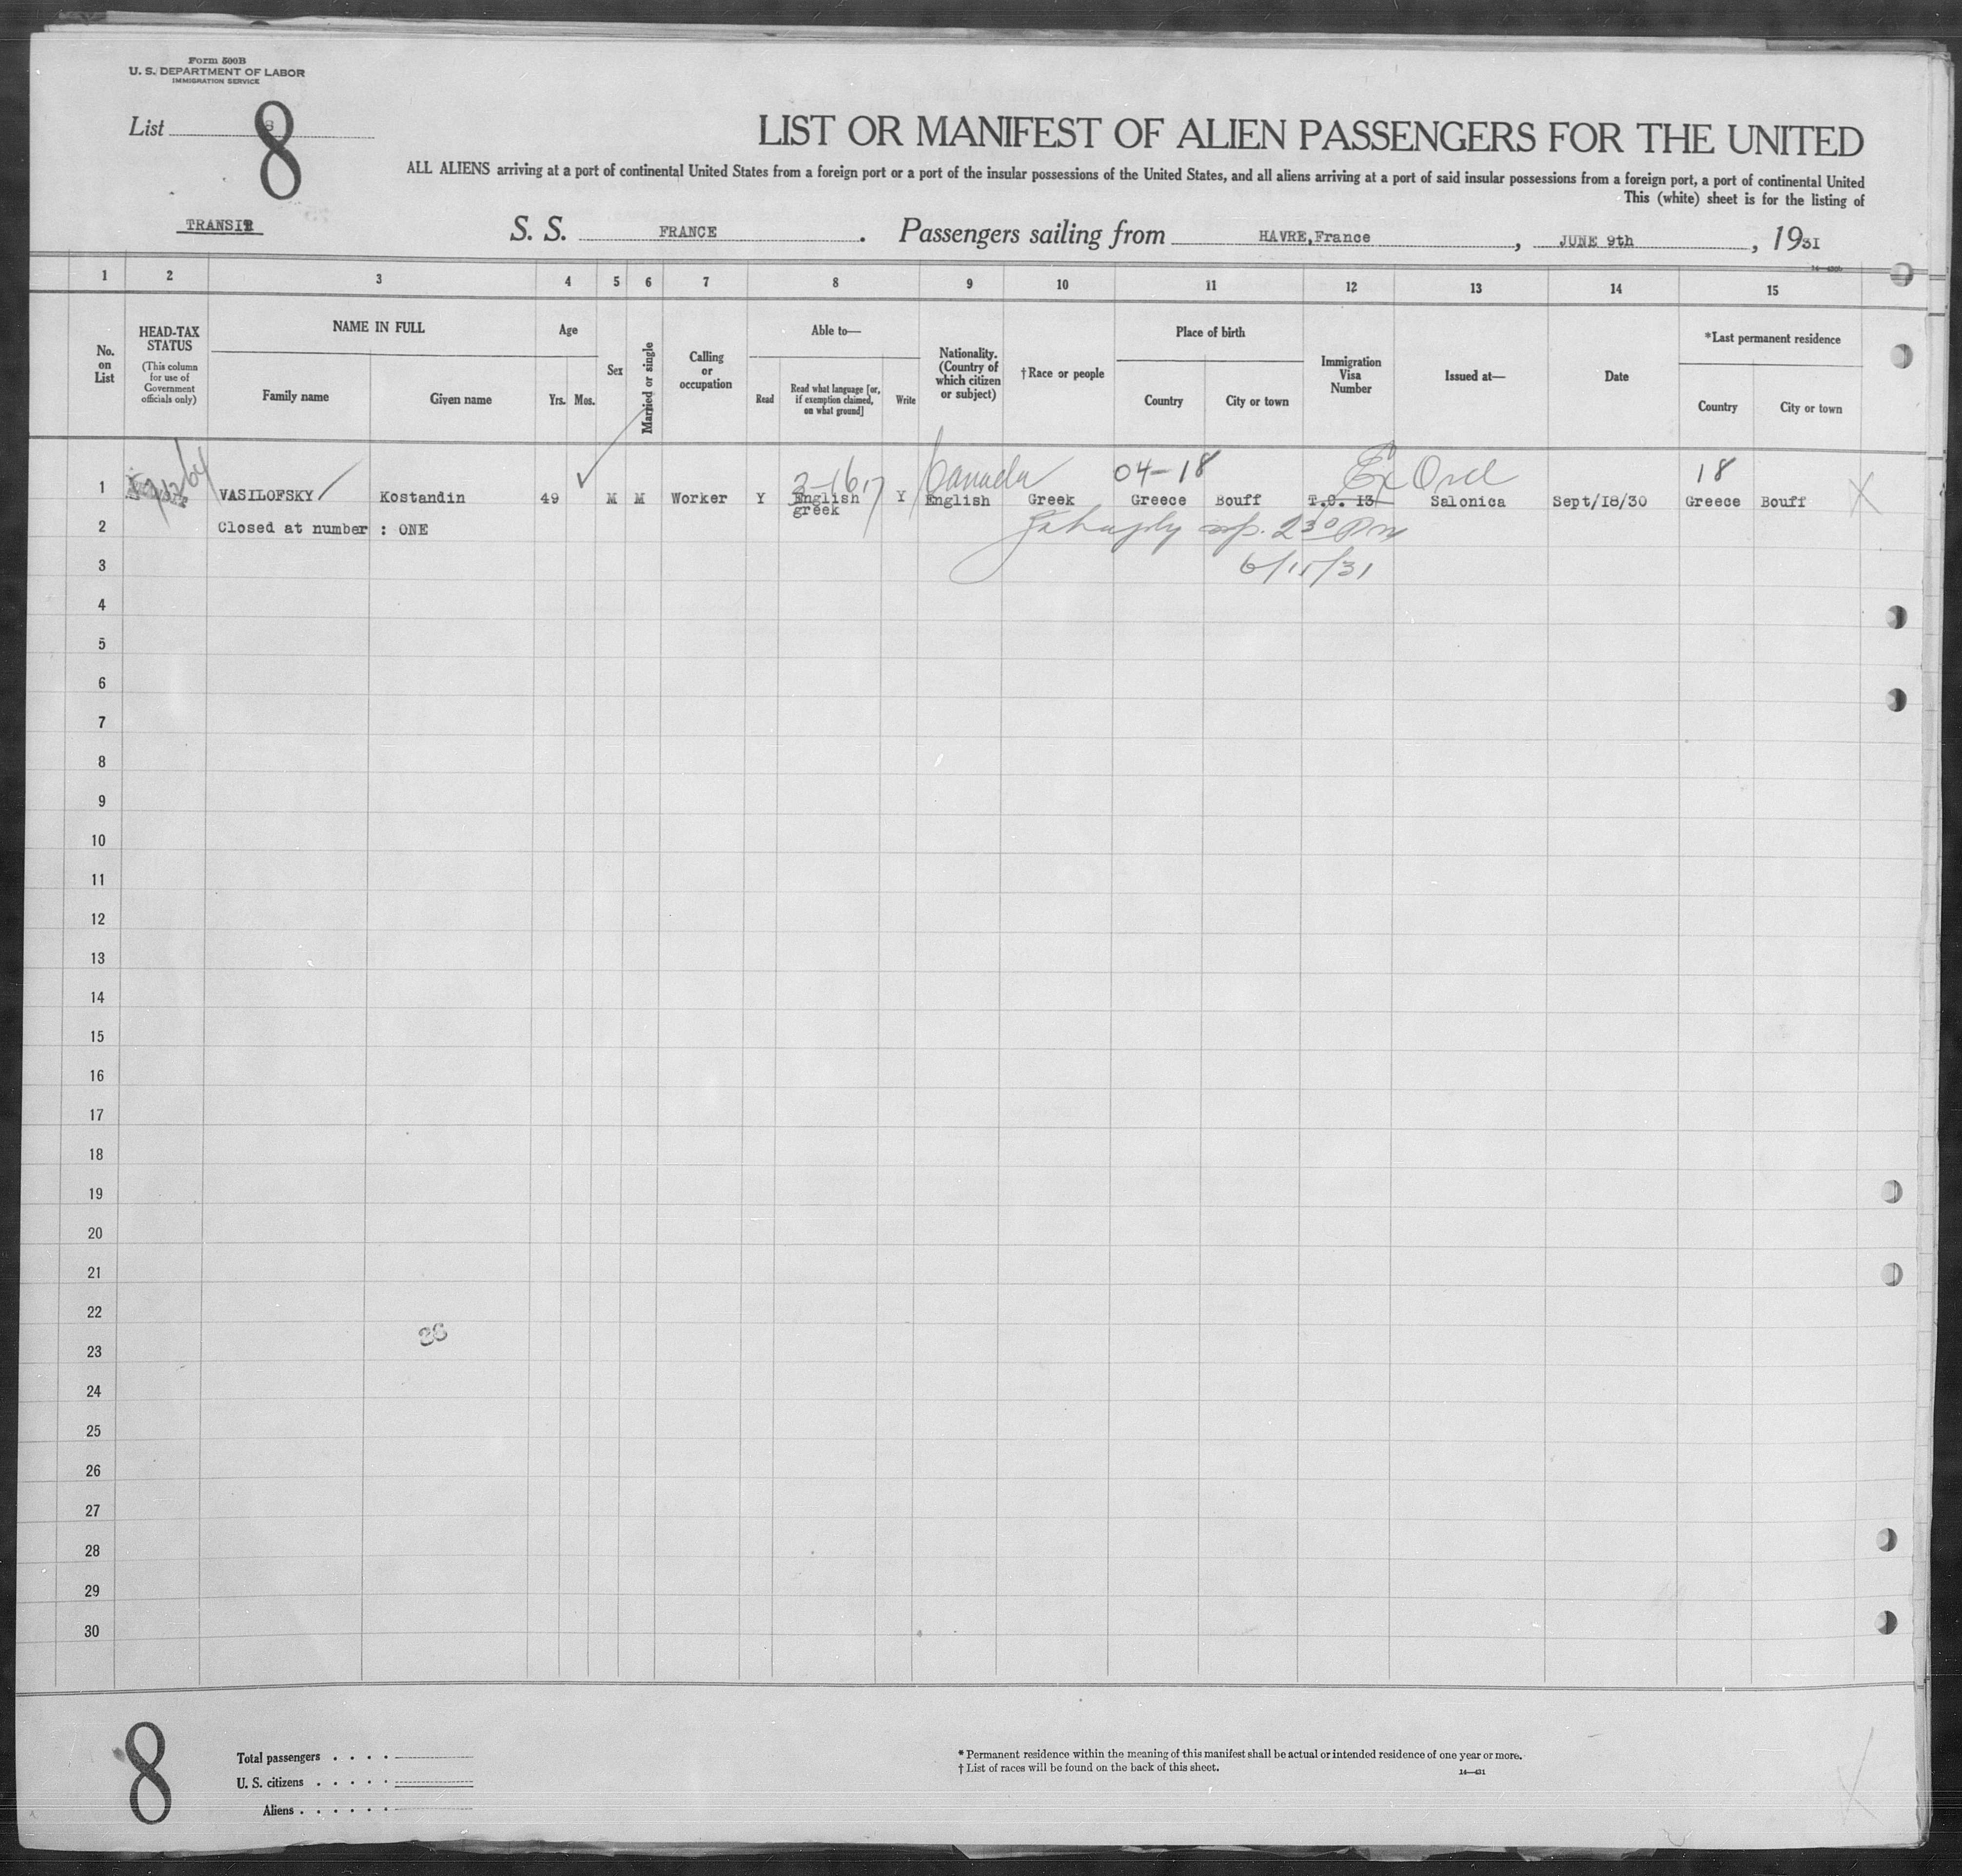 Form 500B
U. S. DEPARTMENT OF LABOR
IMMIGRATION SERVICE
List 8
8
LIST OR MANIFEST OF ALIEN PASSENGERS FOR THE UNITED
ALL ALIENS arriving at a port of continental United States from a foreign port or a port of the insular possessions of the United States, and all aliens arriving at a port of said insular possessions from a foreign port, a port of continental United
This (white) sheet is for the listing of
TRANSIT S. S. FRANCE. Passengers sailing from HAVRE,France, JUNE 9th, 1931
1 2 3 4 5 6 7 8 9 10 11 12 13 14 15
No. on List
HEAD-TAX STATUS
(This column for use of Government officials only)
NAME IN FULL
Family name
Given name
Age
Yrs. Mos.
Sex
Married or single
Calling or occupation
Able to—
Read
Read what language [or, if exemption claimed, on what ground]
Write
Nationality. (Country of which citizen or subject)
†Race or people
Place of birth
Country
City or town
Immigration Visa Number
Issued at—
Date
*Last permanent residence
Country
City or town
Canada 04-18 18
1 VASILOFSKY Kostandin 49 M M Worker Y English Y English Greek Greece Bouff T.C. 13 Salonica Sept/18/30 Greece Bouff X
greek
2 Closed at number : ONE
2 30 PM
3 6/15/31
4
5
6
7
8
9
10
11
12
13
14
15
16
17
18
19
20
21
22
23
24
25
26
27
28
29
30
8
Total passengers . . . .
U. S. citizens . . . . .
Aliens . . . . . .
* Permanent residence within the meaning of this manifest shall be actual or intended residence of one year or more.
† List of races will be found on the back of this sheet.
14—431